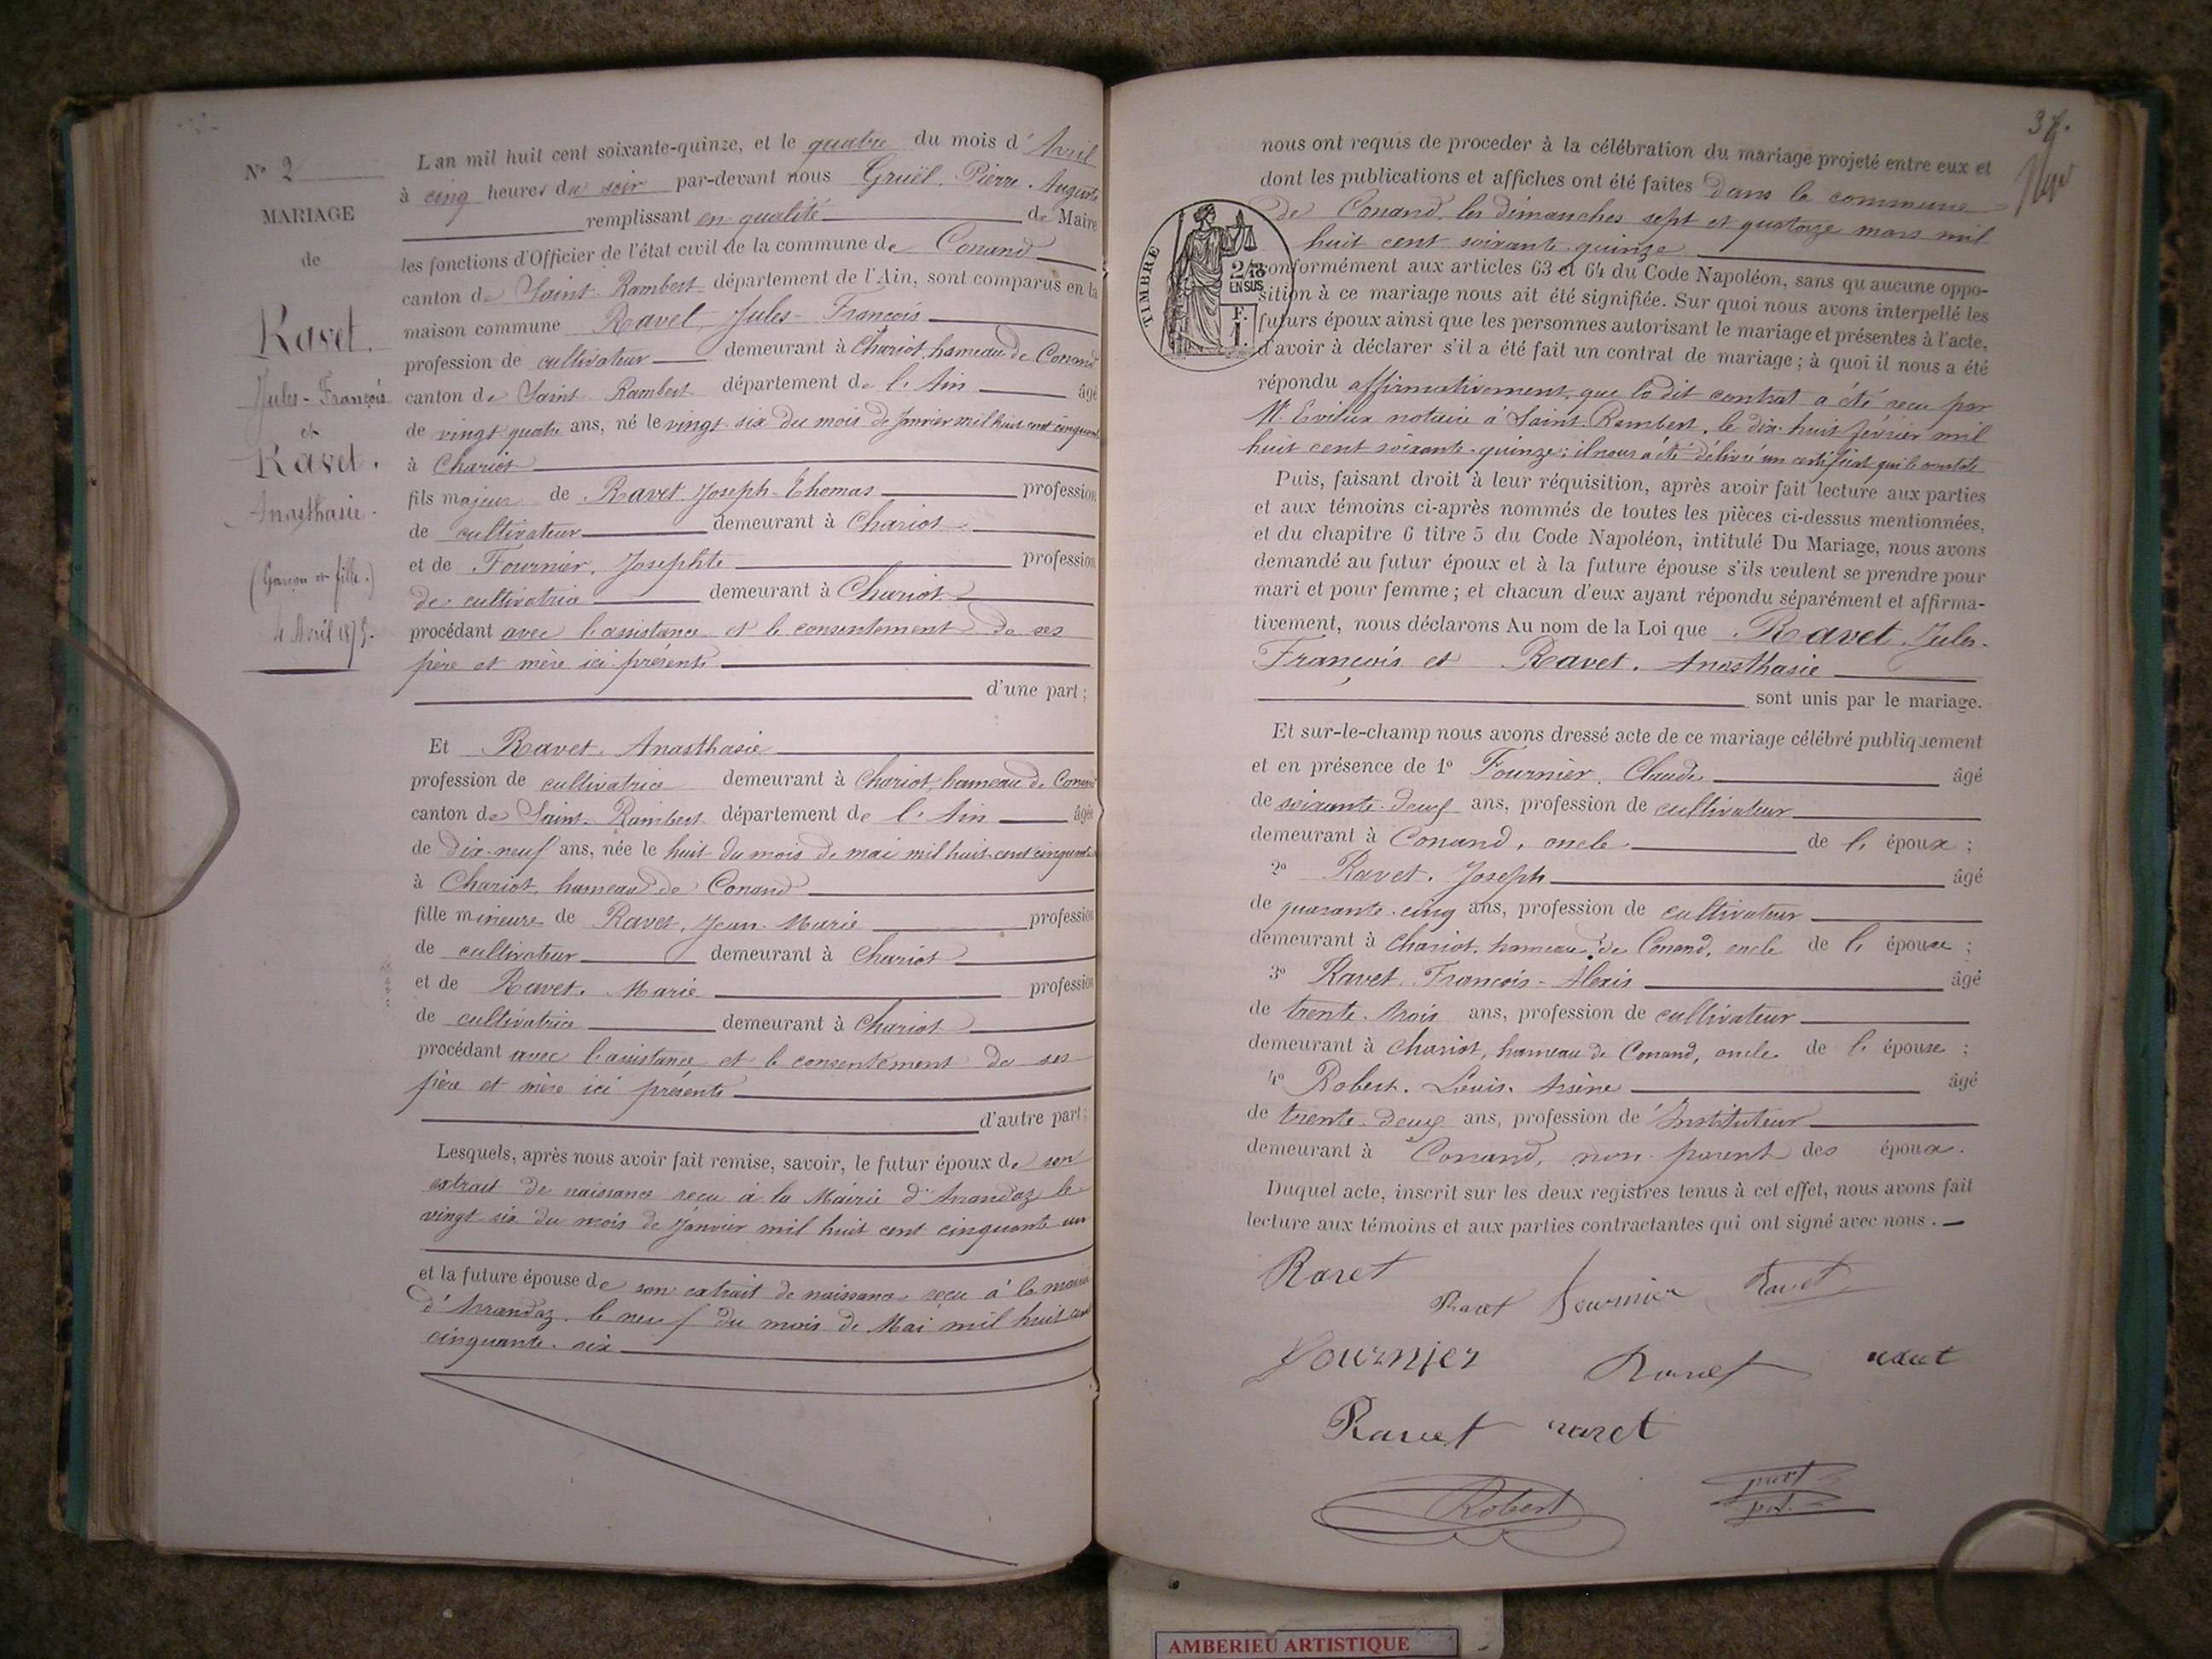 Nº 2
MARIAGE
de
Ravet.
Jules-François
et
Ravet.
Anasthasie.
(Garçon et fille.)
4 Avril 1875.
L'an mil huit cent soixante-quinze, et le quatre du mois d'Avril
à cinq heures du soir par-devant nous Gruël Pierre Auguste
remplissant en qualité de Maire
les fonctions d'Officier de l'état civil de la commune de Conand
canton de Saint Rambert département de l'Ain, sont comparus en la
maison commune Ravet, Jules-François
profession de cultivateur demeurant à Chariot, hameau de Conand
canton de Saint Rambert département de l'Ain âgé
de vingt quatre ans, né le vingt-six du mois de Janvier mil huit cent cinquante
à Chariot
fils majeur de Ravet Joseph-Thomas profession
de cultivateur demeurant à Chariot
et de Fournier, Josephte profession
de cultivatrice demeurant à Chariot
procédant avec l'assistance et le consentement de ses
père et mère ici présents
d'une part;
Et Ravet, Anasthasie
profession de cultivatrice demeurant à Chariot, hameau de Conand
canton de Saint-Rambert département de l'Ain âgée
de dix-neuf ans, née le huit du mois de mai mil huit cent cinquante
à Chariot, hameau de Conand
fille mineure de Ravet, Jean-Marie profession
de cultivateur demeurant à Chariot
et de Ravet, Marie profession
de cultivatrice demeurant à Chariot
procédant avec l'assistance et le consentement de ses
père et mère ici présents
d'autre part;
Lesquels, après nous avoir fait remise, savoir, le futur époux de son
extrait de naissance reçu à la Mairie d'Arandaz le
vingt-six du mois de Janvier mil huit cent cinquante un
et la future épouse de son extrait de naissance reçu à la mairie
d'Arrandaz, le neuf du mois de Mai mil huit cent
cinquante-six
37.
nous ont requis de proceder à la célébration du mariage projeté entre eux et
dont les publications et affiches ont été faites dans la commune
de Conand, les dimanches sept et quatorze mars mil
huit cent soixante-quinze
TIMBRE
2/10
EN SUS
F.
1.
conformément aux articles 63 et 64 du Code Napoléon, sans qu'aucune oppo-
sition à ce mariage nous ait été signifiée. Sur quoi nous avons interpellé les
futurs époux ainsi que les personnes autorisant le mariage et présentes à l'acte,
d'avoir à déclarer s'il a été fait un contrat de mariage; à quoi il nous a été
répondu affirmativement, que le dit contrat a été reçu par
Me notaire à Saint Rambert, le dix-huit février mil
huit cent soixante-quinze; il nous a été délivré un certificat qui le constate
Puis, faisant droit à leur réquisition, après avoir fait lecture aux parties
et aux témoins ci-après nommés de toutes les pièces ci-dessus mentionnées,
et du chapitre 6 titre 5 du Code Napoléon, intitulé Du Mariage, nous avons
demandé au futur époux et à la future épouse s'ils veulent se prendre pour
mari et pour femme; et chacun d'eux ayant répondu séparément et affirma-
tivement, nous déclarons Au nom de la Loi que Ravet Jules-
François et Ravet, Anasthasie
sont unis par le mariage.
Et sur-le-champ nous avons dressé acte de ce mariage célébré publiquement
et en présence de 1º Fournier, Claude âgé
de soixante-deux ans, profession de cultivateur
demeurant à Conand, oncle de l'époux;
2º Ravet, Joseph âgé
de quarante-cinq ans, profession de cultivateur
demeurant à Chariot, hameau de Conand, oncle de l'épouse;
3º Ravet, François-Alexis âgé
de trente-trois ans, profession de cultivateur
demeurant à Chariot, hameau de Conand, oncle de l'épouse;
4º Robert, Louis, Arsène âgé
de trente-deux ans, profession de Instituteur
demeurant à Conand, non parent des époux.
Duquel acte, inscrit sur les deux registres tenus à cet effet, nous avons fait
lecture aux témoins et aux parties contractantes qui ont signé avec nous.
Ravet
Ravet Fournier Ravet
Fournier Ravet ravet
Ravet ravet
Robert
AMBERIEU ARTISTIQUE